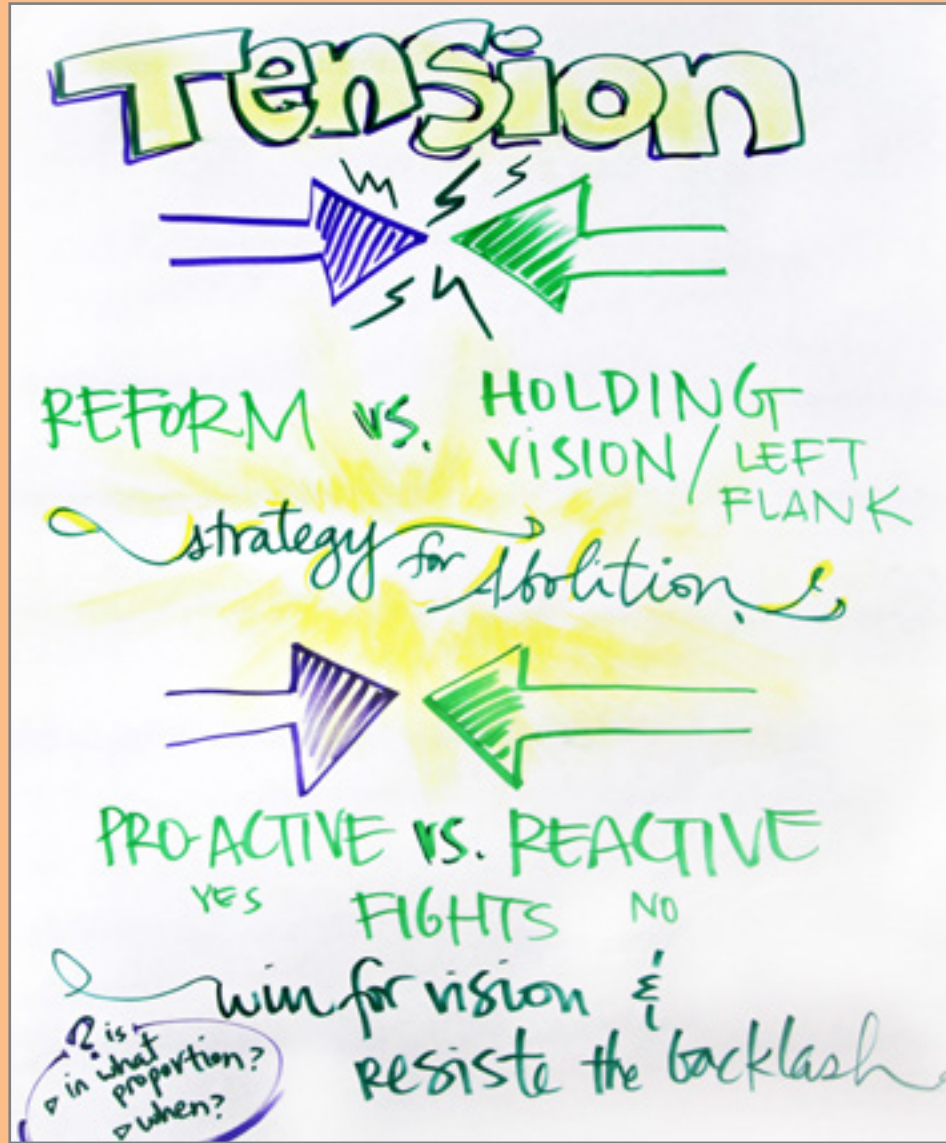 Tension
REFORM vs. HOLDING
VISION/LEFT
FLANK
strategy for Abolition
PRO-ACTIVE vs. REACTIVE
YES FIGHTS NO
win for vision &
RESISTE the backlash
? is
in what
proportion?
when?